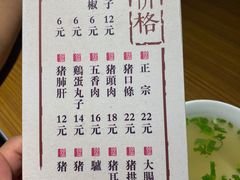 价格
子 12元
椒 6元
6元
正宗 22元
猪口條 22元
猪頭肉 18元
五香肉 16元
鷄蛋丸子 14元
猪肺肝 12元
大腸
猪
猪耳
驢
猪
猪